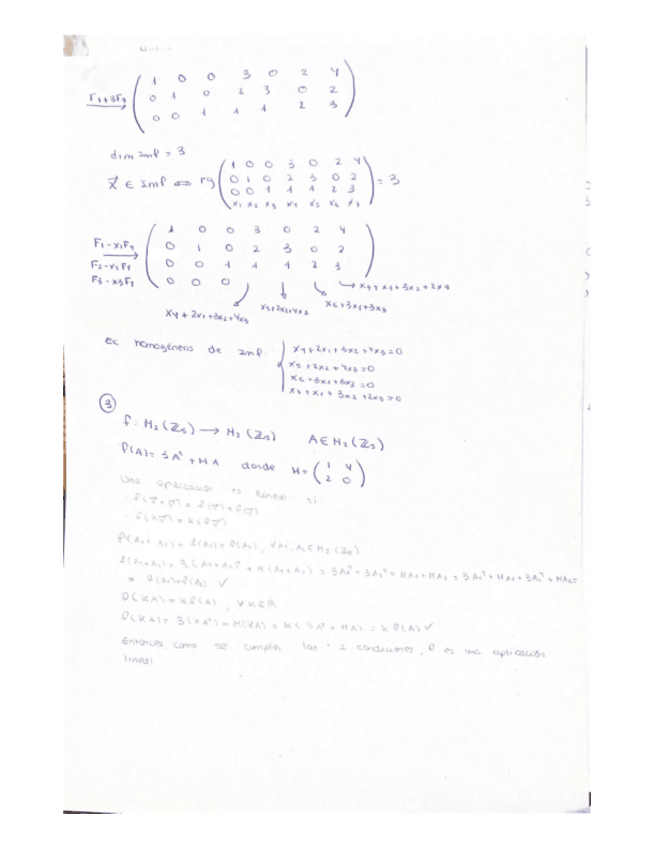 F1+3F3 → ( 1 0 0 3 0 2 4
0 1 0 2 3 0 2
0 0 1 1 1 2 3 )
dim Imf = 3
x⃗ ∈ Imf ⟺ rg ( 1 0 0 3 0 2 4
0 1 0 2 3 0 2
0 0 1 1 1 2 3
x1 x2 x3 x4 x5 x6 x7 ) = 3
F1-x1F4
F2-x1F1
F3-x3F1 → ( 1 0 0 3 0 2 4
0 1 0 2 3 0 2
0 0 1 1 1 2 3
0 0 0
x7+x1+3x2+2x3
x6+3x1+3x3
x5+2x2+4x3
x4+2x1+3x2+4x3
Ec homogéneas de Imf.
x4+2x1+3x2+4x3=0
x5+2x2+4x3=0
x6+3x1+3x3=0
x7+x1+3x2+2x3=0
3
f: M2(ℤ5) → M2(ℤ5) A∈M2(ℤ5)
f(A)= 3Aᵗ + MA donde M= ( 1 4
2 0 )
Una aplicación es lineal si:
· f(x⃗+y⃗) = f(x⃗)+f(y⃗)
· f(kx⃗) = kf(x⃗)
f(A1+A2) = f(A1)+f(A2), ∀A1,A2∈M2(ℤ5)
f(A1+A2) = 3(A1+A2)ᵗ + M(A1+A2) = 3A1ᵗ+3A2ᵗ+MA1+MA2 = 3A1ᵗ+MA1+3A2ᵗ+MA2=
= f(A1)+f(A2) ✓
f(KA) = Kf(A), ∀K∈
f(KA) = 3(KA)ᵗ + M(KA) = K(3Aᵗ + MA) = K f(A) ✓
Entonces, como se cumplen las 2 condiciones, f es una aplicación
lineal